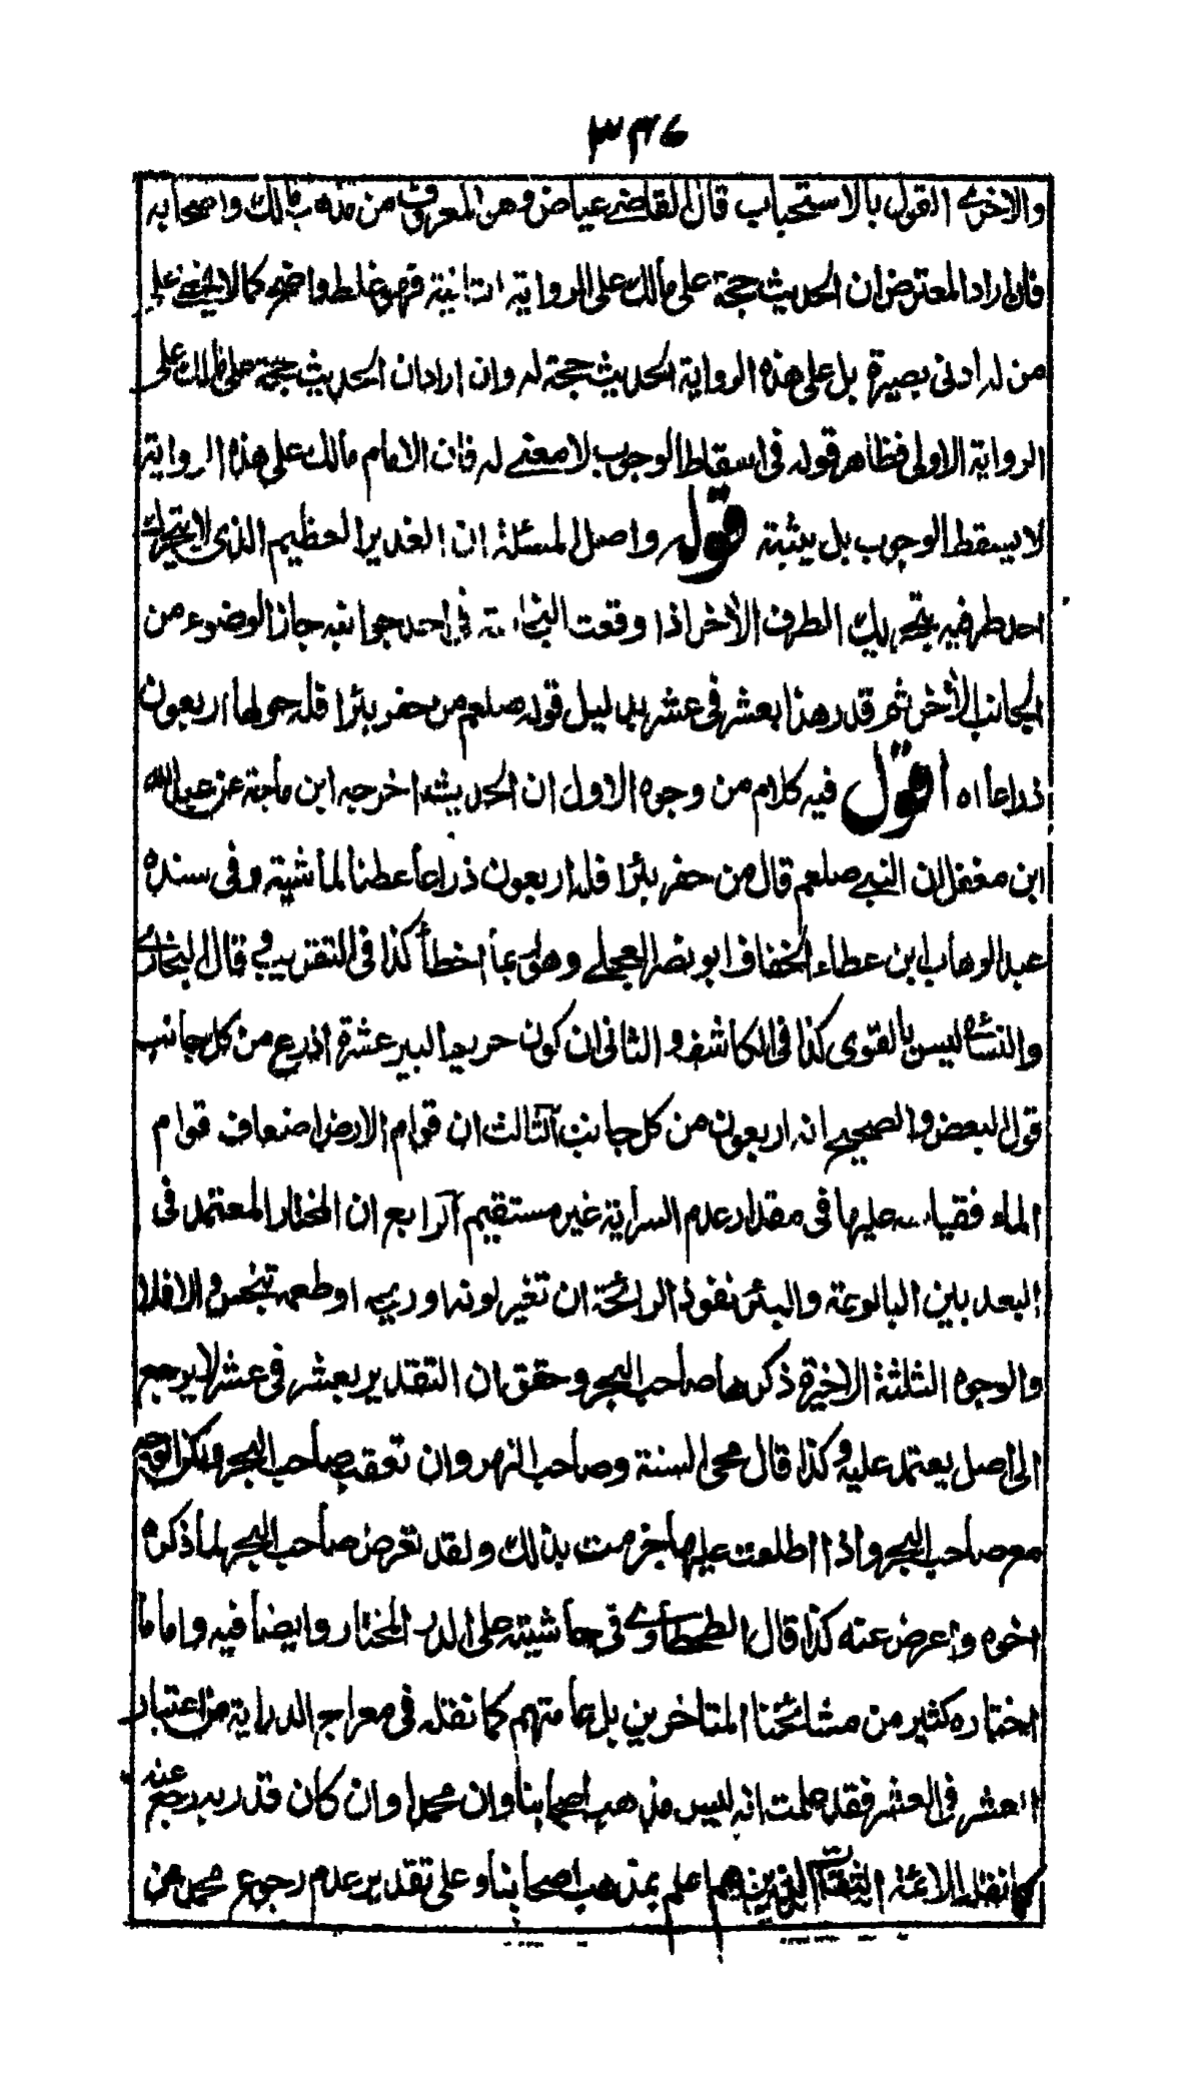 ٣٣٦
والاخرى القول بالاستحباب قال القاضى عياض وهو المعروف من مذهب مالك واصحابه
فان اراد المعترض ان الحديث حجة على مالك على الرواية الثانية فهو غلط واضح كما لا يخفى على
من له ادنى بصيرة بل على هذه الرواية الحديث حجة له وان اراد ان الحديث حجة على مالك على
الرواية الاولى فظاهر قوله فى اسقاط الوجوب لا معنى له فان الامام مالك على هذه الرواية
لا يسقط الوجوب بل يثبته قوله واصل المسئلة ان الغدير العظيم الذى لا يتحرك
احد طرفيه بتحريك الطرف الأخر اذا وقعت النجاسة فى احد جوانبه جاز الوضوء من
الجانب الأخر ثم قدر هذا بعشر فى عشر بدليل قوله صلعم من حفر بئرا فله حولها اربعون
ذراعا اه اقول فيه كلام من وجوه الاول ان الحديث اخرجه ابن ماجة عن عبد الله
ابن مغفل ان النبى صلعم قال من حفر بئرا فله اربعون ذراعا عطنا لماشيته وفى سنده
عبد الوهاب ابن عطاء الخفاف ابو نصر العجلى وهو ربما اخطأ كذا فى التقريب قال البخارى
والنسائى ليس بالقوى كذا فى الكاشف والثانى ان كون حريم البير عشرة اذرع من كل جانب
قول البعض والصحيح انه اربعون من كل جانب الثالث ان قوام الارض اضعاف قوام
الماء فقياسه عليها فى مقدار عدم السراية غير مستقيم الرابع ان المختار المعتمد فى
البعد بين البالوعة والبئر نفوذ الرائحة ان تغير لونه او ريحه او طعمه تنجس والا فلا
والوجوه الثلثة الاخيرة ذكرها صاحب البحر وحقق ان التقدير بعشر فى عشر لا يرجع
الى اصل يعتمد عليه وكذا قال محى السنة وصاحب النهر وان تعقب صاحب البحر ولكن الوجه
مع صاحب البحر واذا اطلعت عليها جزمت بذلك ولقد تعرض صاحب البحر لما ذكره
اخوه واعرض عنه كذا قال الطحطاوى فى حاشيته على الدر المختار وايضا فيه واما ما
اختاره كثير من مشائخنا المتاخرين بل عامتهم كما نقله فى معراج الدراية من اعتبار
العشر فى العشر فقد علمت انه ليس مذهب اصحابنا وان محمدا وان كان قدر به رجع عنه
كما نقله الائمة الثقات الذين هم اعلم بمذهب اصحابنا وعلى تقدير عدم رجوع محمد عن